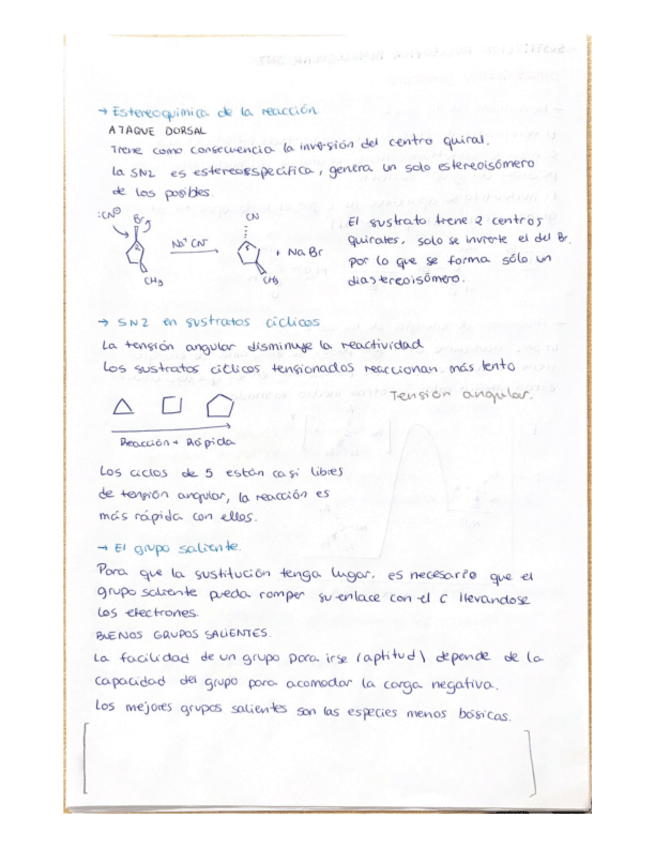 → Estereoquímica de la reacción
ATAQUE DORSAL
Tiene como consecuencia la inversión del centro quiral.
La SN2 es estereoespecífica, genera un solo estereoisómero
de los posibles.
:CN⊖ Br
Na⁺ CN⁻
CH3
CN
+ NaBr
CH3
El sustrato tiene 2 centros
quirales, solo se invierte el del Br.
por lo que se forma sólo un
diastereoisómero.
→ SN2 en sustratos cíclicos
La tensión angular disminuye la reactividad
Los sustratos cíclicos tensionados reaccionan más lento
Tensión angular.
Reacción + Rápida
Los ciclos de 5 están casi libres
de tensión angular, la reacción es
más rápida con ellos.
→ El grupo saliente.
Para que la sustitución tenga lugar, es necesario que el
grupo saliente pueda romper su enlace con el C llevandose
los electrones.
BUENOS GRUPOS SALIENTES.
La facilidad de un grupo para irse (aptitud) depende de la
capacidad del grupo para acomodar la carga negativa.
Los mejores grupos salientes son las especies menos básicas.